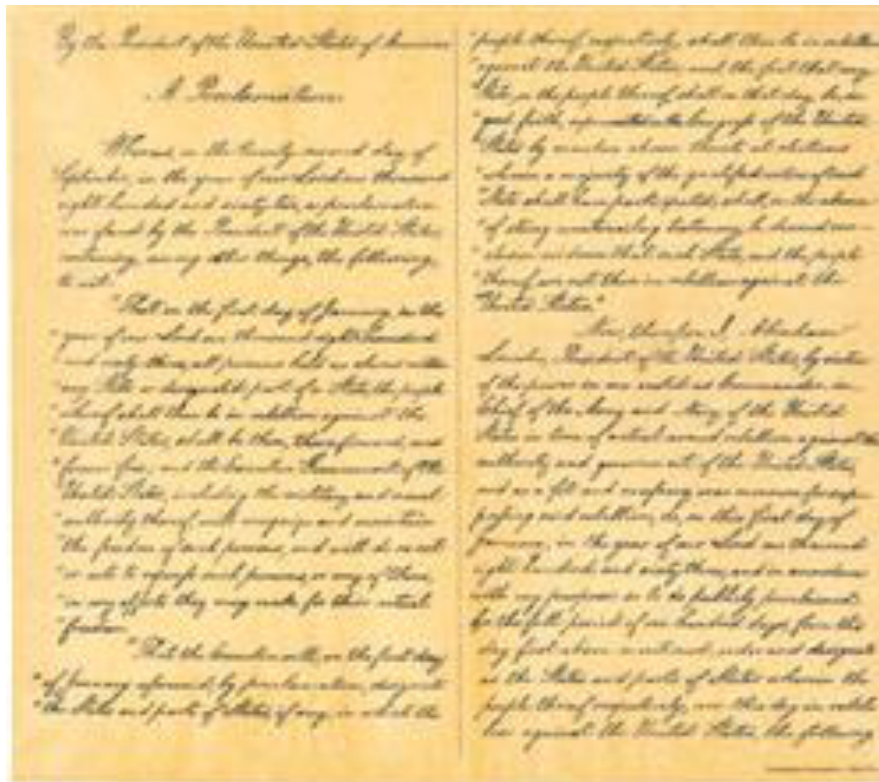 By the President of the United States of America
A Proclamation.
Whereas, on the twenty second day of
September, in the year of our Lord one thousand
eight hundred and sixty two, a proclamation
was issued by the President of the United States,
containing, among other things, the following,
to wit:
"That on the first day of January, in the
"year of our Lord one thousand eight hundred
"and sixty three, all persons held as slaves within
"any State or designated part of a State, the people
"whereof shall then be in rebellion against the
"United States, shall be then, thenceforward, and
"forever free; and the Executive Government of the
"United States, including the military and naval
"authority thereof, will recognize and maintain
"the freedom of such persons, and will do no act
"or acts to repress such persons, or any of them,
"in any efforts they may make for their actual
"freedom.
"That the Executive will, on the first day
"of January aforesaid, by proclamation, designate
"the States and parts of States, if any, in which the
"people thereof, respectively, shall then be in rebellion
"against the United States; and the fact that any
"State, or the people thereof, shall on that day be in
"good faith, represented in the Congress of the United
"States by members chosen thereto at elections
"wherein a majority of the qualified voters of such
"State shall have participated, shall, in the absence
"of strong countervailing testimony, be deemed con-
"clusive evidence that such State, and the people
"thereof, are not then in rebellion against the
"United States."
Now, therefore I, Abraham
Lincoln, President of the United States, by virtue
of the power in me vested as Commander-in-
Chief of the Army and Navy of the United
States in time of actual armed rebellion against the
authority and government of the United States,
and as a fit and necessary war measure for sup-
pressing said rebellion, do, on this first day of
January, in the year of our Lord one thousand
eight hundred and sixty three, and in accordance
with my purpose so to do publicly proclaimed
for the full period of one hundred days, from the
day first above mentioned, order and designate
as the States and parts of States wherein the
people thereof respectively, are this day in rebel-
lion against the United States, the following